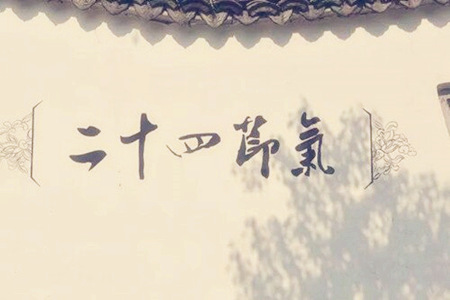 二十四節氣